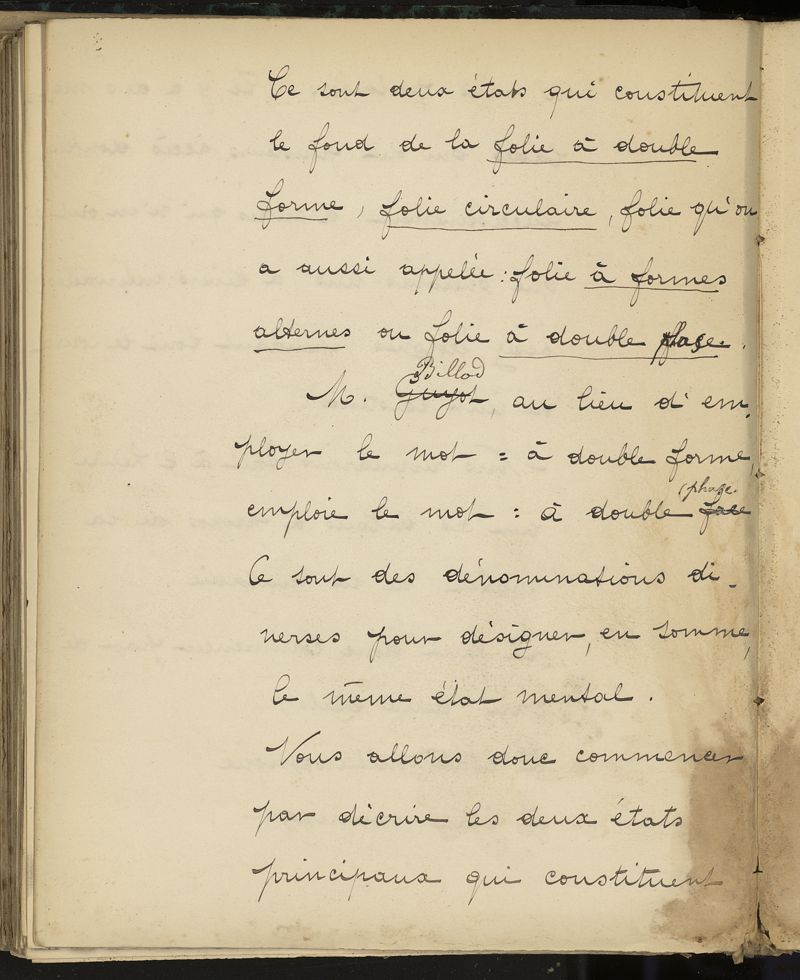 Ce sont deux états qui constituent
le fond de la folie à double
forme, folie circulaire, folie qu'on
a aussi appelée : folie à formes
alternes ou folie à double phase.
Billod
M. Guyot, au lieu d'em-
ployer le mot = à double forme,
phase.
emploie le mot : à double face
Ce sont des dénominations di-
verses pour désigner, en somme,
le même état mental.
Nous allons donc commencer
par décrire les deux états
principaux qui constituent